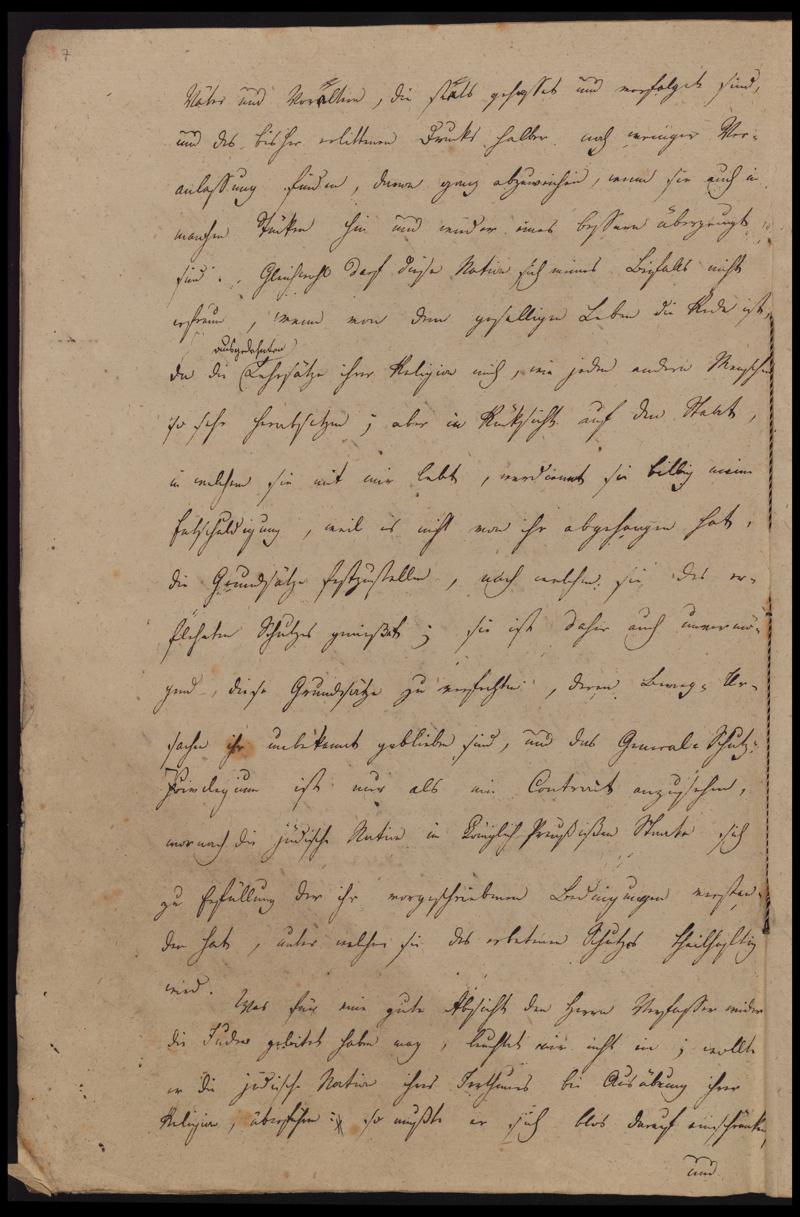 7
Väter und Vorältern, die stäts gehasset und verfolget sind,
und des bisher erlittenen Drucks halber noch weniger Ver-
anlassung finden, davon ganz abzuweichen, wenn sie auch in
manchen Stüken hin und wieder eines bessern überzeugt
sind. Gleichwohl darf diese Nation sich meines Beyfalls nicht
erfreuen, wenn von dem geselligen Leben die Rede ist,
ausgedehnten
da die Lehrsätze ihrer Religion mich, wie jeden andern Menschen
so sehr herabsetzen; aber in Rüksicht auf den Staat,
in welchem sie mit mir lebt, verdient sie billig meine
Entschuldigung, weil es nicht von ihr abgehangen hat,
die Grundsätze festzustellen, nach welchen sie des er-
flehten Schutzes genießet; sie ist daher auch unvermö-
gend, diese Grundsätze zu verfechten, deren Beweg-Ur-
sachen ihr unbekannt geblieben sind, und das General-Schutz-
Privilegium ist nur als ein Contract anzusehen,
wornach die jüdische Nation im Königlich Preußischen Staate sich
zu Erfüllung der ihr vorgeschriebenen Bedingungen verstan-
den hat, unter welchen sie des erbetenen Schutzes theilhaftig
wird.
Was für eine gute Absicht den Herrn Verfasser wider
die Juden geleitet haben mag, leuchtet mir nicht ein; wollte
er die jüdische Nation ihres Irrthums bei Ausübung ihrer
Religion, überführen: so mußte er sich blos darauf einschränken,
und